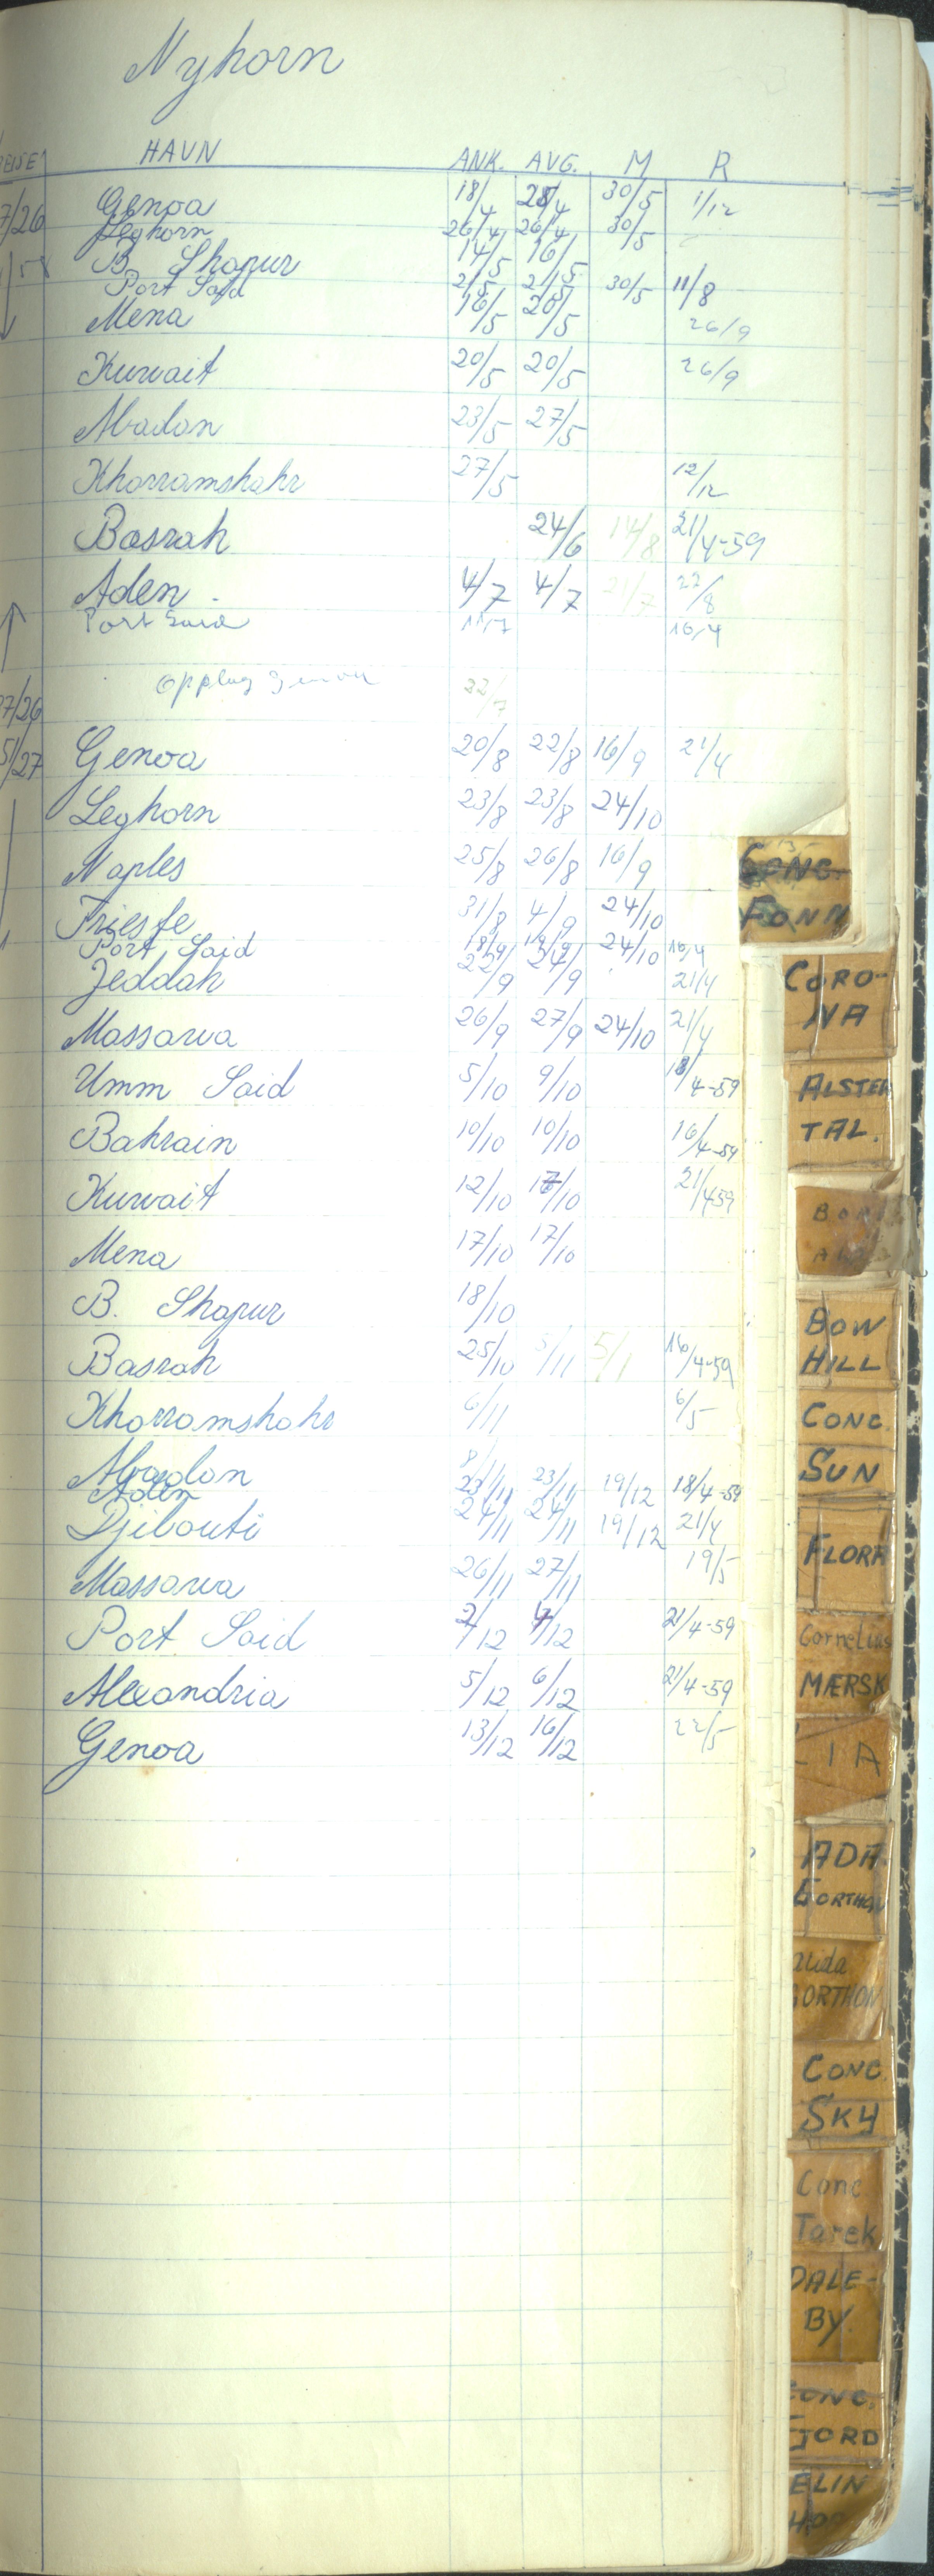 Nyhorn
HAVN ANK. AVG. M R
Genoa 18/4 28/4 30/5 1/12
Leghorn 26/4 26/4 30/5
B. Shapur 14/5 16/5
Port Said 2/5 2/5 30/5 11/8
Mena 16/5 20/5 26/9
Kuwait 20/5 20/5 26/9
Abadan 23/5 27/5
Khorramshahr 27/5 12/12
Basrah 24/6 14/8 21/4-59
Aden 4/7 4/7 21/7 22/8
Port Said 11/7 16/4
Opplag Genoa 22/7
Genoa 20/8 22/8 16/9 21/4
Leghorn 23/8 23/8 24/10
Naples 25/8 26/8 16/9
Trieste 31/8 4/9 24/10
Port Said 18/9 19/9 24/10 16/4
Jeddah 22/9 24/9 21/4
Massawa 26/9 27/9 24/10 21/4
Umm Said 5/10 9/10 18/4-59
Bahrain 10/10 10/10 16/4-59
Kuwait 12/10 17/10 21/4-59
Mena 17/10 17/10
B. Shapur 18/10
Basrah 25/10 5/11 5/1 16/4-59
Khorramshahr 6/11 6/5
Abadan 8/11
Aden 23/11 23/11 19/12 18/4-59
Djibouti 24/11 24/11 19/12 21/4
Massawa 26/11 27/11 19/5
Port Said 2/12 4/12 21/4-59
Alexandria 5/12 6/12 21/4-59
Genoa 13/12 16/12 22/5
7/26
27/26
51/27
CONC.
FONN
CORO-
NA
ALSTER
TAL.
BOW
HILL
CONC.
SUN
FLORA
Cornelius
MÆRSK
IA
ADA
GORTHON
GORTHON
CONC.
SKY
Conc
Tarek
DALE-
BY.
CONC.
FJORD
ELIN